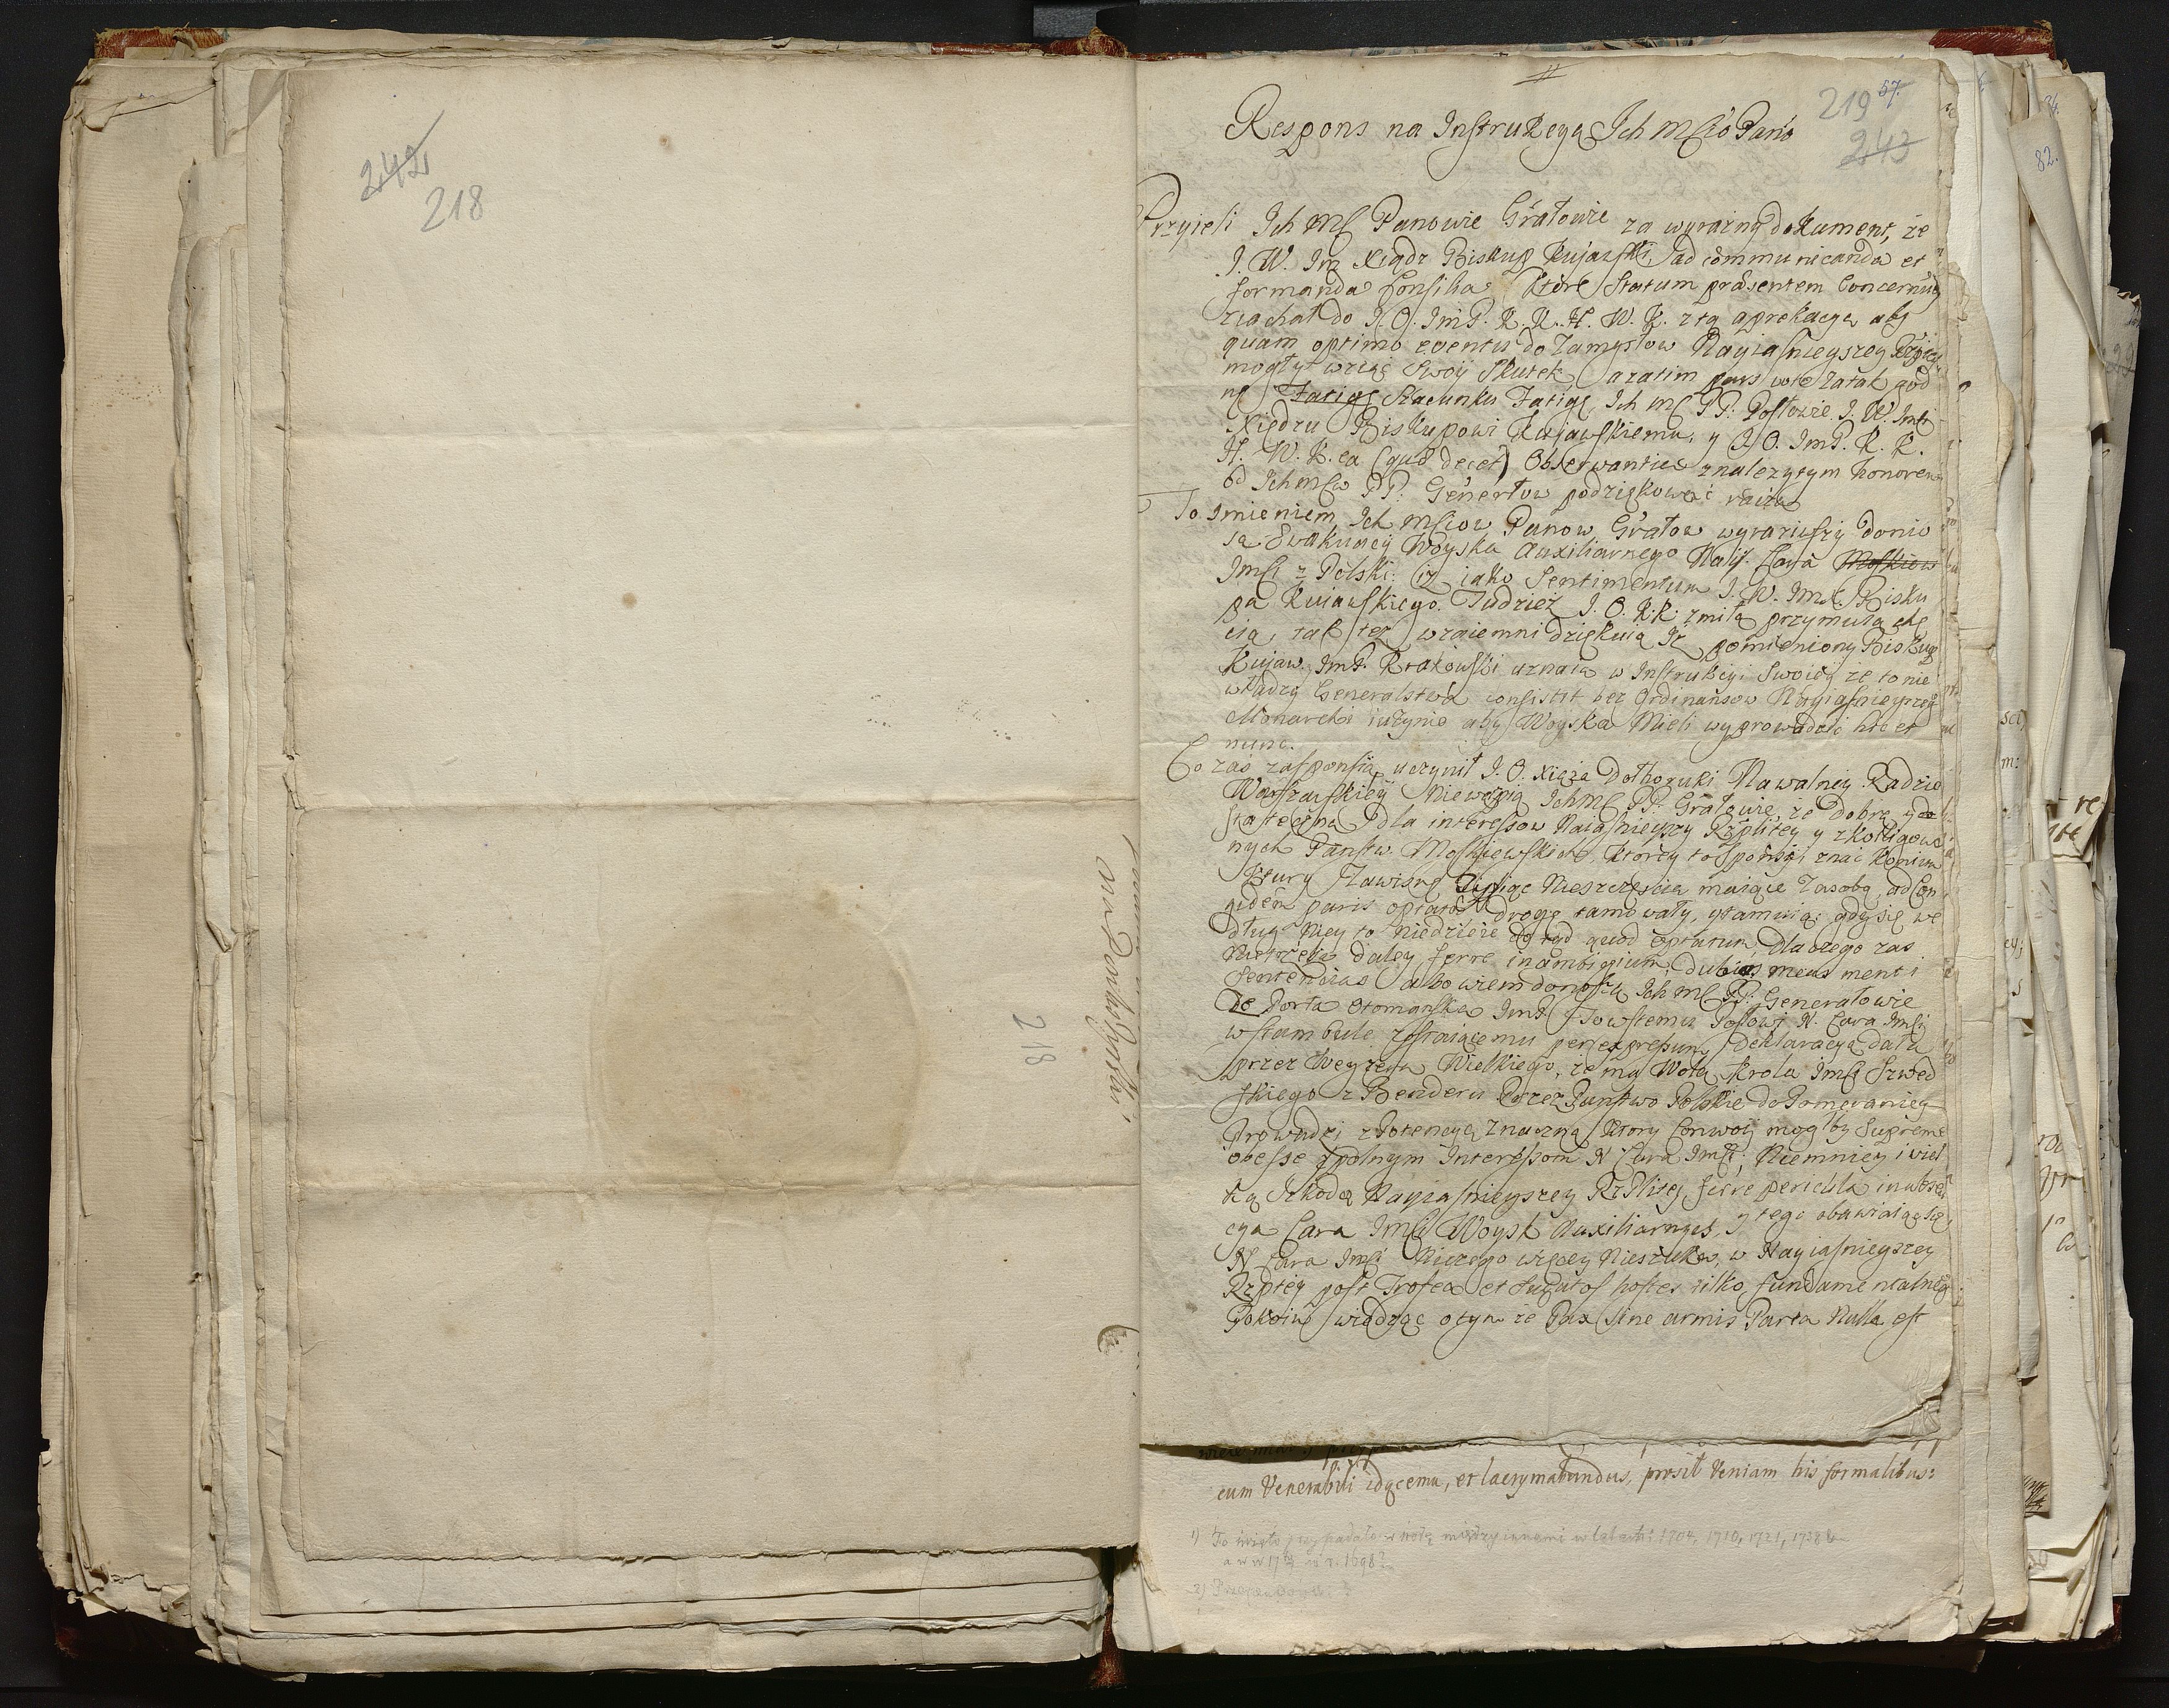 242
218
218
219 57.
243
Respons na Instrukcyą Ich Mśció Panó
Przyieli Ich Mć Panowie Grałowie za wyraźny dokument, że
J. W. Im Xiądz Biskup Kujawski, ad communicanda et
formanda Consilia które Statum præsentem Concernuią
ziachał do J. O. ImP. K. K. H. W. K. z tą aprekacyą aby
quam optimo eventu do Zamysłow Nayiasnieyszey Rzpltey
mogły wziąć Swoy Skutek a zatim za tak god
ną Fatigę Szacunku Fatigę Ich Mć PP. Posłowie J. W. Imći
Xiędzu Biskupowi Kujawskiemu, y J. O. ImP. K. K.
H. W. K. ea (quo decet) Observantia z nalezytym honorem
od Ichmćiow PP. Generłow podziękować raczą
To Imieniem Ich Mćiow Panow Grałow wyraziwszy donio
są Ewakuacij Woyska Auxiliarnego Nayi. Cara Moskiew
Imći z Polski: iż iako Sentimentum J. W. Imć Bisku
pa Kujawskiego. Tudzież J. O. K. K. z miłą przymuią chę
cią, tak też wzaiemni dziękuią Iż pomieniony Biskup
Kujaw. ImP. Krakowski uznaią w Instrukcyi Swoiey że to nie
władzy Generalstwa consistit bez Ordinansow Nayiasnieyszego
Monarchi iedynie aby Woyska Mieli wyprowadzić hic et
nunc.
Co zas zasponsią uczynił J. O. Xiąże Dolhoruki Na walney Radzie
Warszawskiey Niewątpią Ichmć PP. Grałowie, że dobrą y do
stateczną dla interessow Naiasnieyszy Rzpltey y zkolligowa
nych Panstw Moskiewskich, ktorey to Sponsyi znać koniun
ktury Zawisne Nieszczęscia maiące Zasobą, ad Con
gidem paris optatos drogę tamowały, y tamuią: gdy się we
dług Niey to Niedzieie do tąd quod optatum, Dla czego zas
Nietrzeba daley ferre in ambigium, dubias meas menti
Sentencias albowiem donoszą Ich Mć PP. Generałowie
że Porta Otomanska ImP. Towstemu Posłowi N. Cara Imći
w Stambule zostaiącemu per expressum Deklaracyą dała
przez Wezyra Wielkiego, że ma Wolą Krola Imći Szwed
skiego z Benderu Przez Panstwo Polskie do Pomeraniey
Prowadzi z Potencyą Znaczną Ktory Conwoij mogłby Supreme
obesse spolnym Interessom N Cara Imći, Niemniey i wiel
ką Szkodą Nayiasnieyszey RzPlitey ferre pericula in absen
cya Cara Imći Woysk Auxiliarnych, y tego obawiaiąc się
N Cara Imći Niczego więcey Nieszuka, w Nayiasnieyszey
Rzptey post Trofea et fugatos hostes tilko fundamentalneg
Pokoiu wiedząc o tym że Pax Sine armis Parta Nulla est
cum Venerabili idącemu, et lacrymabundus, prosił Veniam his formalibus:
1) To święto przypadało w środę między innemi w latach: 1704, 1710, 1721, 1732
a w w 17 1698?
2)